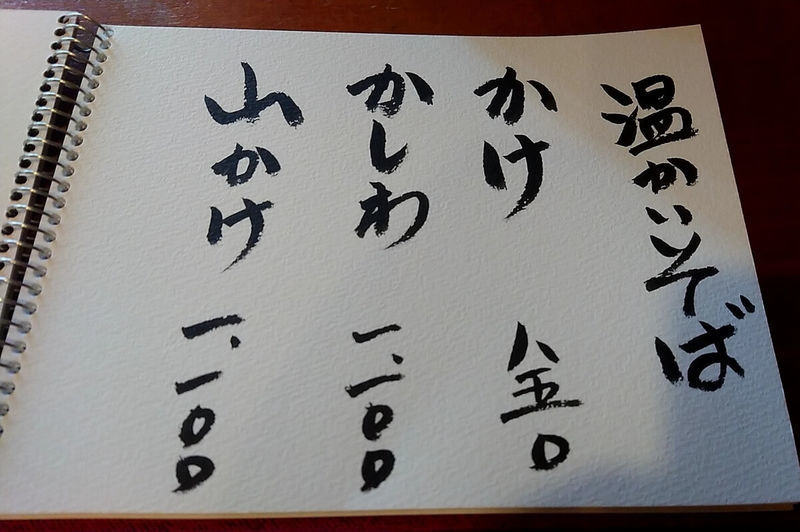 温かいそば
かけ 八五〇
かしわ 一、一〇〇
山かけ 一、一〇〇